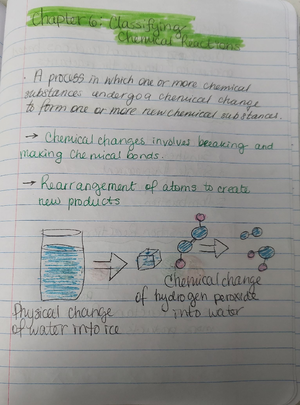 Chapter 6: Classifying
Chemical Reactions
· A process in which one or more chemical
substances undergo a chemical change
to form one or more new chemical substances.
→ Chemical changes involves breaking and
making chemical bonds.
→ Rearrangement of atoms to create
new products
Physical change
of water into ice
Chemical change
of hydrogen peroxide
into water